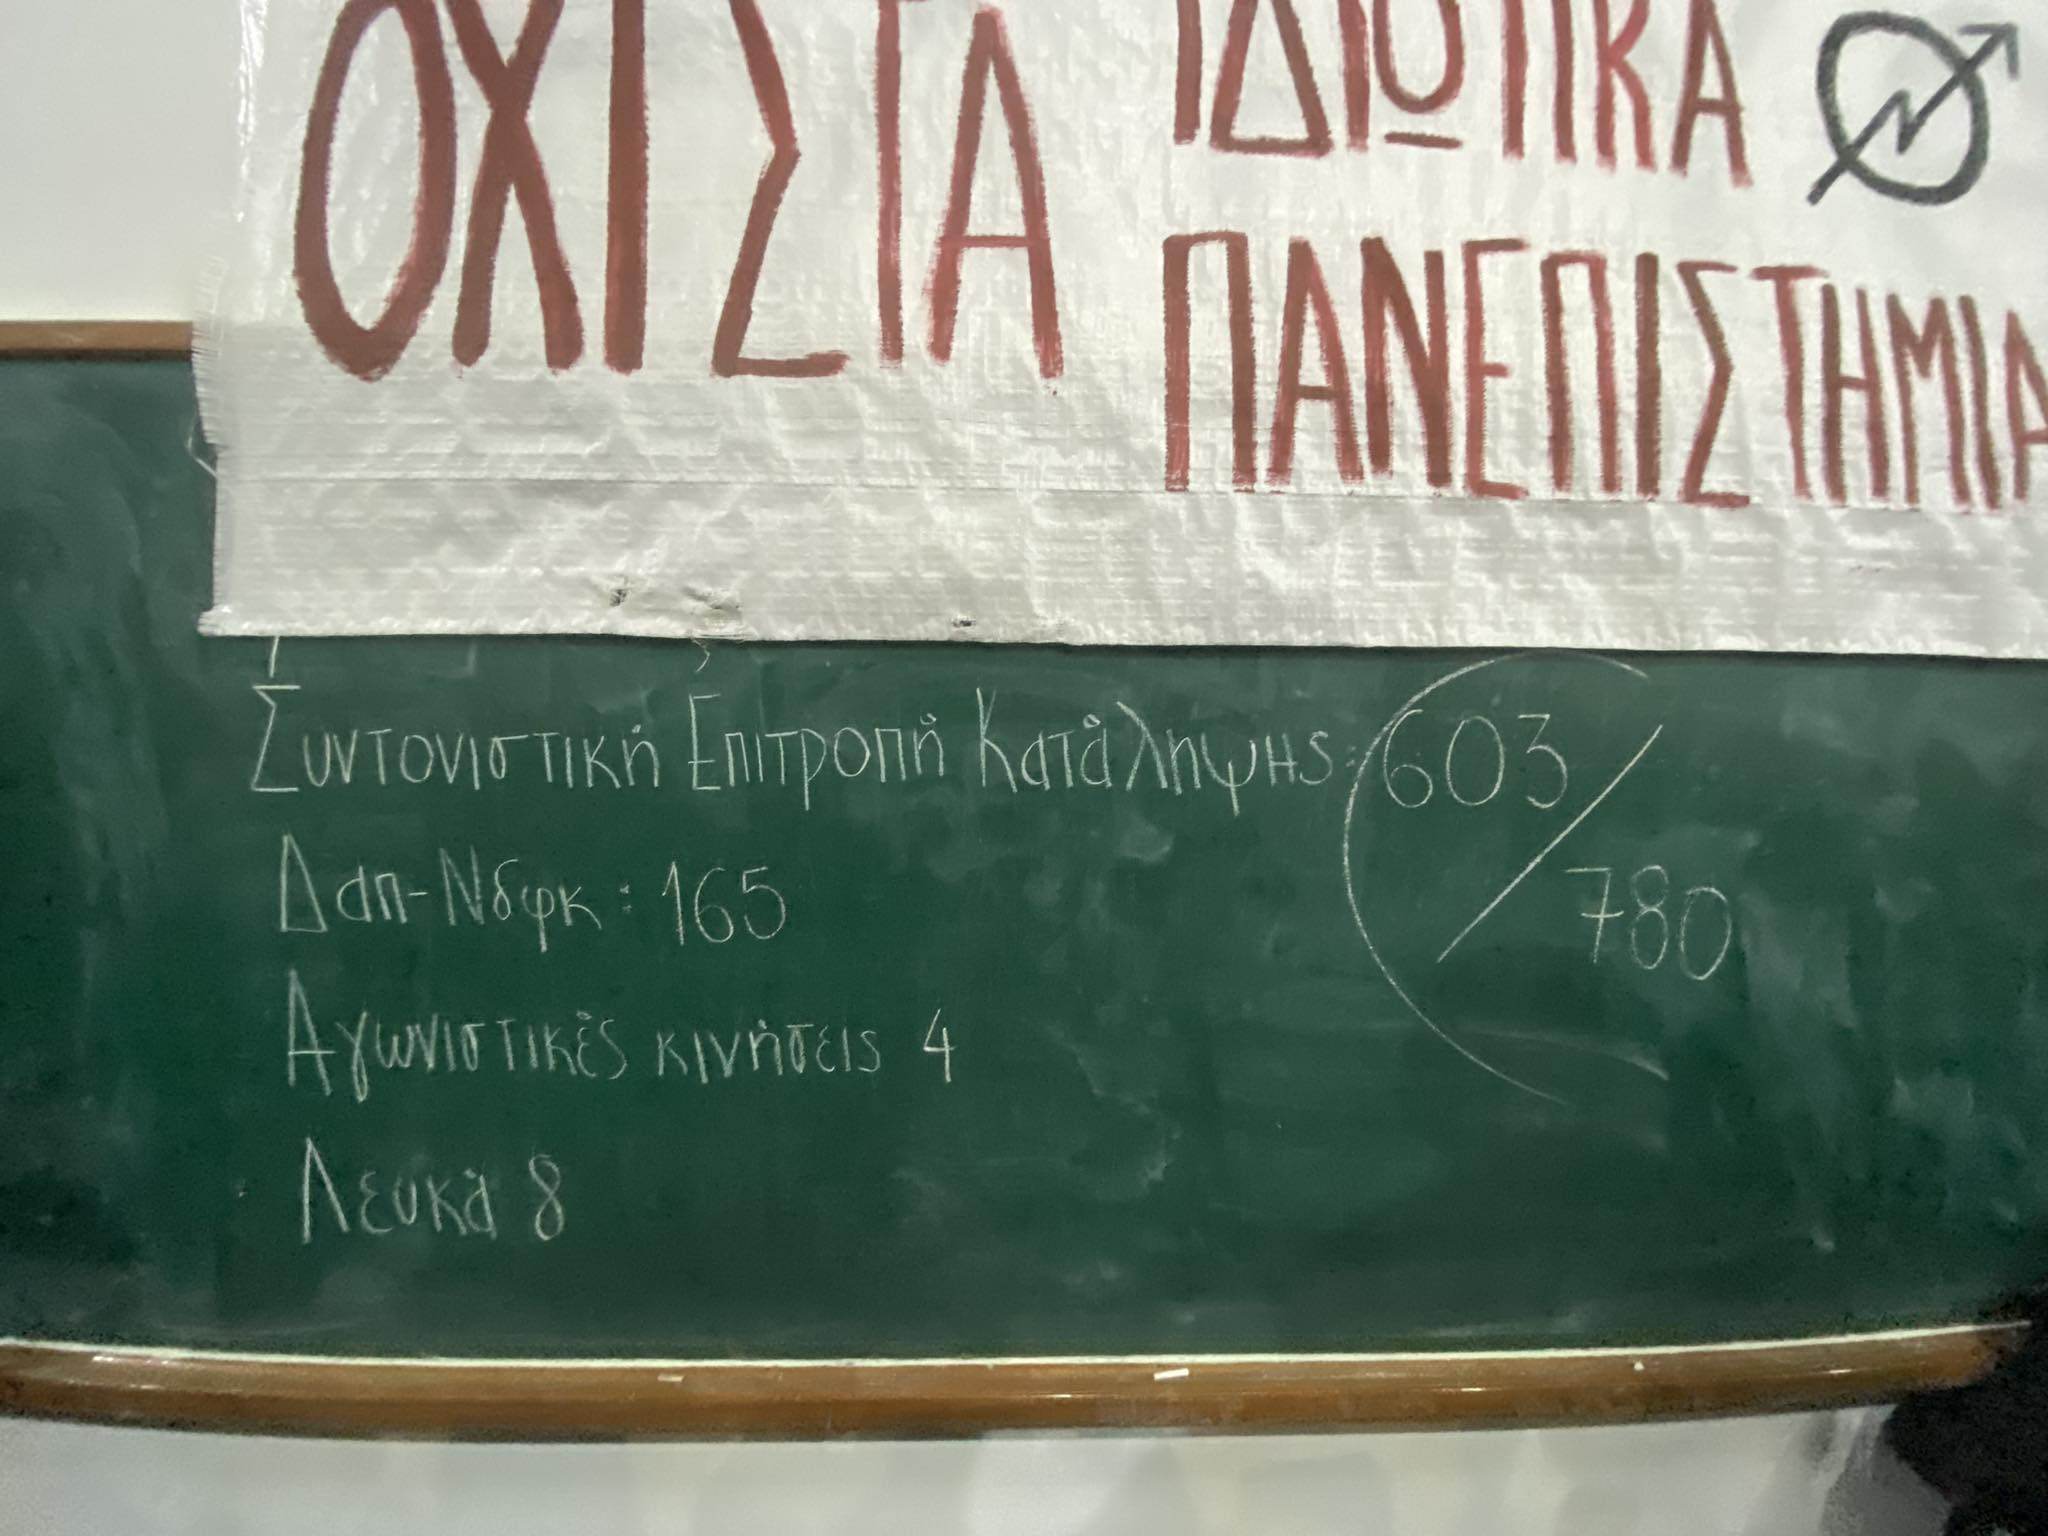 ΟΧΙ ΣΤΑ
ΙΔΙΩΤΙΚΑ
ΠΑΝΕΠΙΣΤΗΜΙΑ
Συντονιστική Επιτροπή Κατάληψης: 603/780
Δαπ-Νδφκ: 165
Αγωνιστικές κινήσεις 4
Λευκά 8